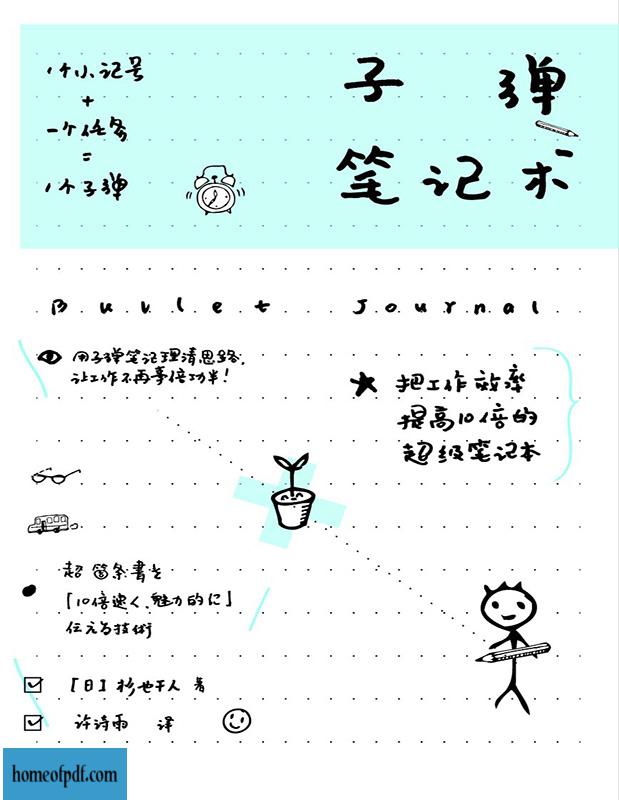 1个小记号
+
一个任务
=
1个子弹
子弹
笔记术
Bullet Journal
用子弹笔记理清思路,
让工作不再事倍功半!
★ 把工作效率
提高10倍的
超级笔记本
超 箇条書き
「10倍速く、魅力的に」
伝える技術
[日] 杉野干人 著
许诗雨 译
homeofpdf.com